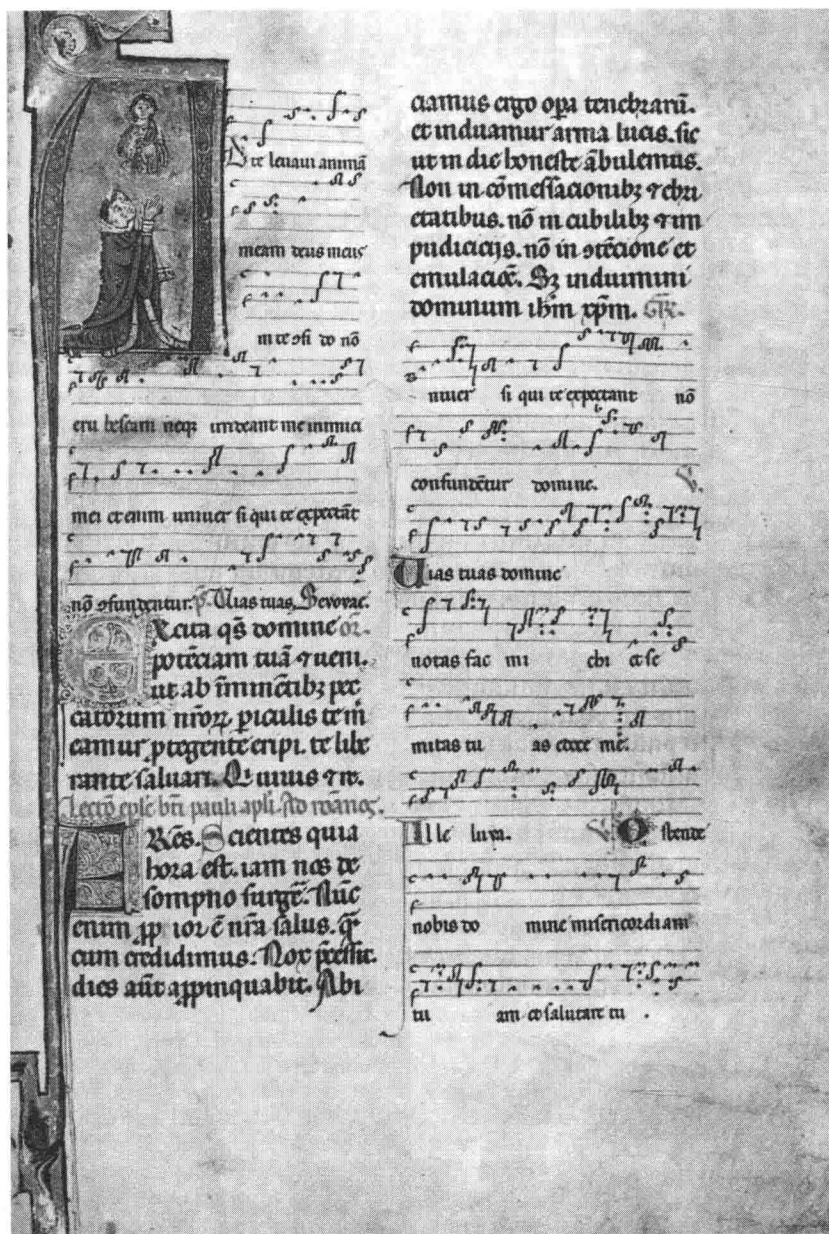 A
D te levavi animā
meam deus meus
in te ɔfi do nō
eru bescam neqȝ irrideant me inimici
mei et enim univer si qui te expectāt
nō ɔfundentur. p̄. Uias tuas. Sevovae.
Excita q̄s domine or̄.
potēciam tuā ⁊ ueni.
ut ab īminētibȝ pec
catorum nr̄orꝝ piculis te m̄
eamur ꝓtegente eripi. te libe
rante saluari. Qi uiuis ⁊ r̄e.
Lectio ep̄le bt̄i pauli apl̄i. Ad romanos.
Fr̄es. Scientes quia
hora est. iam nos de
sompno surgē. Nūc
enim ꝓp ior ē nr̄a salus. q̄
cum credidimus. Nox p̄cessit.
dies aūt aꝓpinquabit. Abi
ciamus ergo oꝑa tenebrarū.
et induamur arma lucis. sic
ut in die honeste ābulemus.
Non in cōmessacionibȝ ⁊ ebri
etatibus. nō in cubilibȝ ⁊ im
pudiciciis. nō in ɔtēcione et
emulaciōe. Sȝ induimini
dominum ih̄m xp̄m. GR̄.
niuer si qui te expectant nō
confundētur domine. V.
Uias tuas domine
notas fac mi chi et se
mitas tu as edoce me.
Alle luya. V. Ostende
nobis do mine misericordi am
tu am et salutare tu .